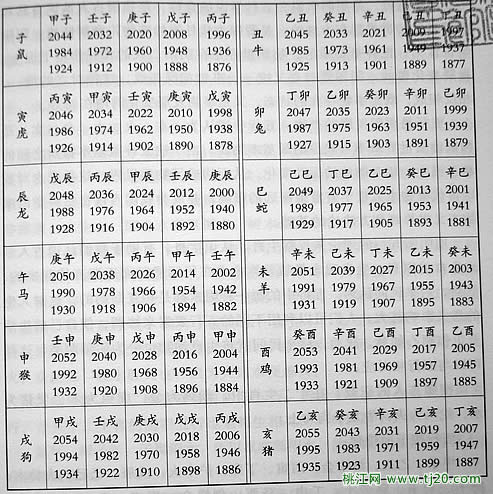 子
鼠
甲子 壬子 庚子 戊子 丙子
2044 2032 2020 2008 1996
1984 1972 1960 1948 1936
1924 1912 1900 1888 1876
丑
牛
乙丑 癸丑 辛丑 己丑 丁丑
2045 2033 2021 2009 1997
1985 1973 1961 1949 1937
1925 1913 1901 1889 1877
寅
虎
丙寅 甲寅 壬寅 庚寅 戊寅
2046 2034 2022 2010 1998
1986 1974 1962 1950 1938
1926 1914 1902 1890 1878
卯
兔
丁卯 乙卯 癸卯 辛卯 己卯
2047 2035 2023 2011 1999
1987 1975 1963 1951 1939
1927 1915 1903 1891 1879
辰
龙
戊辰 丙辰 甲辰 壬辰 庚辰
2048 2036 2024 2012 2000
1988 1976 1964 1952 1940
1928 1916 1904 1892 1880
巳
蛇
己巳 丁巳 乙巳 癸巳 辛巳
2049 2037 2025 2013 2001
1989 1977 1965 1953 1941
1929 1917 1905 1893 1881
午
马
庚午 戊午 丙午 甲午 壬午
2050 2038 2026 2014 2002
1990 1978 1966 1954 1942
1930 1918 1906 1894 1882
未
羊
辛未 己未 丁未 乙未 癸未
2051 2039 2027 2015 2003
1991 1979 1967 1955 1943
1931 1919 1907 1895 1883
申
猴
壬申 庚申 戊申 丙申 甲申
2052 2040 2028 2016 2004
1992 1980 1968 1956 1944
1932 1920 1908 1896 1884
酉
鸡
癸酉 辛酉 己酉 丁酉 乙酉
2053 2041 2029 2017 2005
1993 1981 1969 1957 1945
1933 1921 1909 1897 1885
戌
狗
甲戌 壬戌 庚戌 戊戌 丙戌
2054 2042 2030 2018 2006
1994 1982 1970 1958 1946
1934 1922 1910 1898 1886
亥
猪
乙亥 癸亥 辛亥 己亥 丁亥
2055 2043 2031 2019 2007
1995 1983 1971 1959 1947
1935 1923 1911 1899 1887
桃江网-www.tj20.com